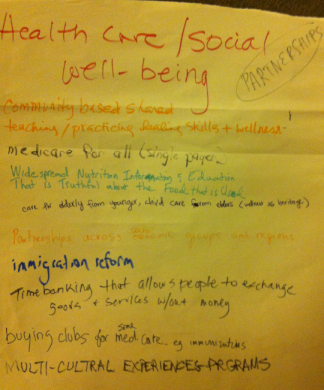 Health care / social
well-being
PARTNERSHIPS
Community based shared
teaching/practicing healing skills + wellness
medicare for all (single payer
Widespread Nutrition Information & Education
That is Truthful about the Food that is
care for elderly from younger, child care from elders
Partnerships across groups and regions
immigration reform
Timebanking that allows people to exchange
goods + services w/out money
buying clubs for some med. care eg immunizations
MULTI-CULTRAL EXPERIENCES PROGRAMS